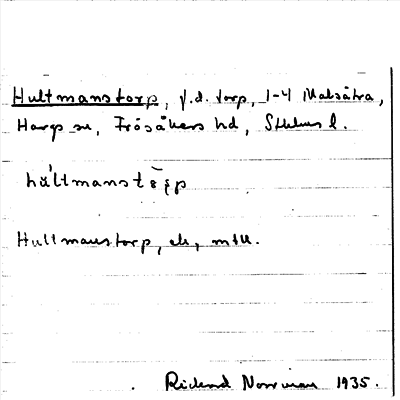 Hultmanstorp, f.d. torp, 1-4 Malsätra,
Hargs sn, Frösåkers hd, Sthlms l.
Hultmanstorp, ek, mtu.
Rickard Norrman 1935.